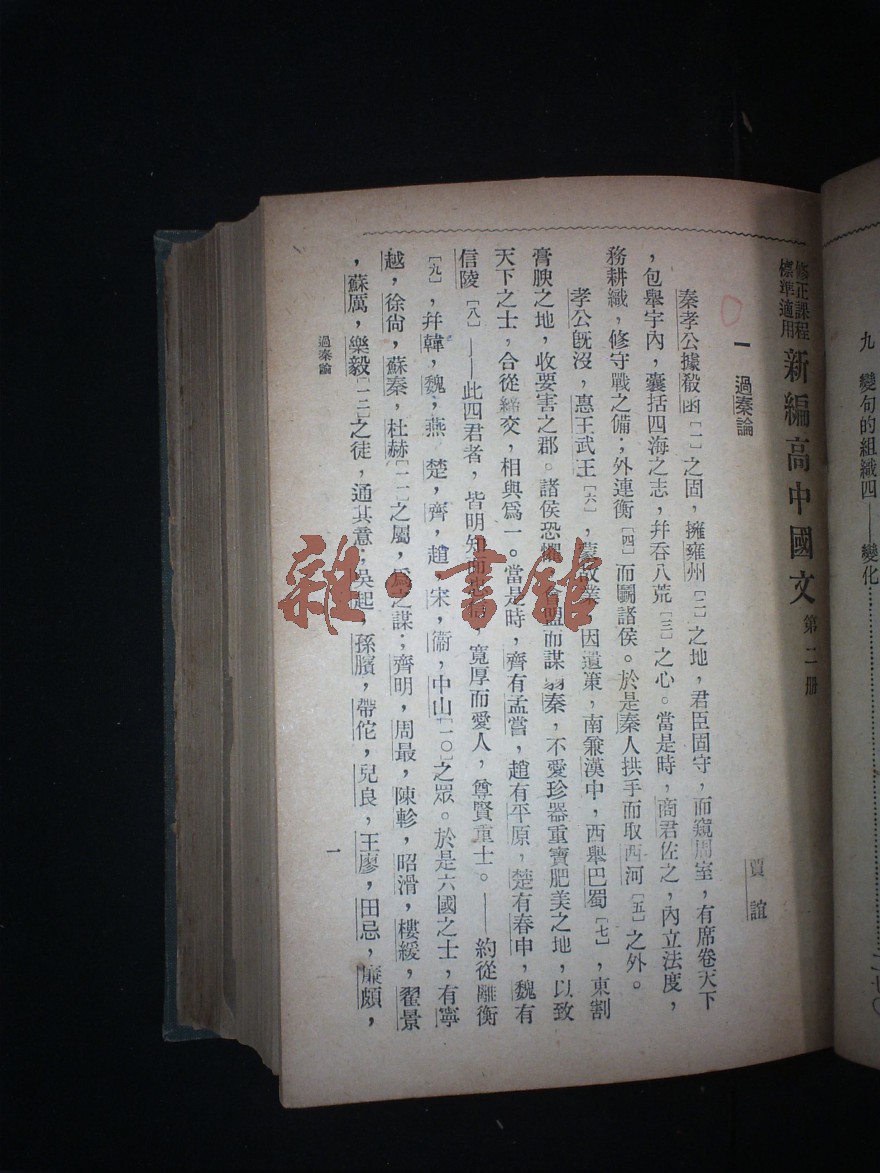 九　變句的組織四——變化
修正課程
標準適用
新編高中國文 第二册
一　過秦論
賈誼
秦孝公據殽函〔一〕之固，擁雍州〔二〕之地，君臣固守，而窺周室，有席卷天下
，包舉宇內，囊括四海之志，幷吞八荒〔三〕之心。當是時，商君佐之，內立法度，
務耕織，修守戰之備；外連衡〔四〕而鬭諸侯。於是秦人拱手而取西河〔五〕之外。
孝公旣沒，惠王武王〔六〕，蒙故業，因遺策，南兼漢中，西舉巴蜀〔七〕，東割
膏腴之地，收要害之郡。諸侯恐懼，會盟而謀弱秦，不愛珍器重寶肥美之地，以致
天下之士，合從締交，相與爲一。當是時，齊有孟嘗，趙有平原，楚有春申，魏有
信陵〔八〕——此四君者，皆明知而忠信，寬厚而愛人，尊賢重士。——約從離衡
〔九〕，幷韓，魏，燕，楚，齊，趙，宋，衞，中山〔一〇〕之眾。於是六國之士，有寧
越，徐尙，蘇秦，杜赫〔一一〕之屬，爲之謀；齊明，周最，陳軫，昭滑，樓緩，翟景
，蘇厲，樂毅〔一二〕之徒，通其意；吳起，孫臏，帶佗，兒良，王廖，田忌，廉頗，
過秦論
一
雜·書館